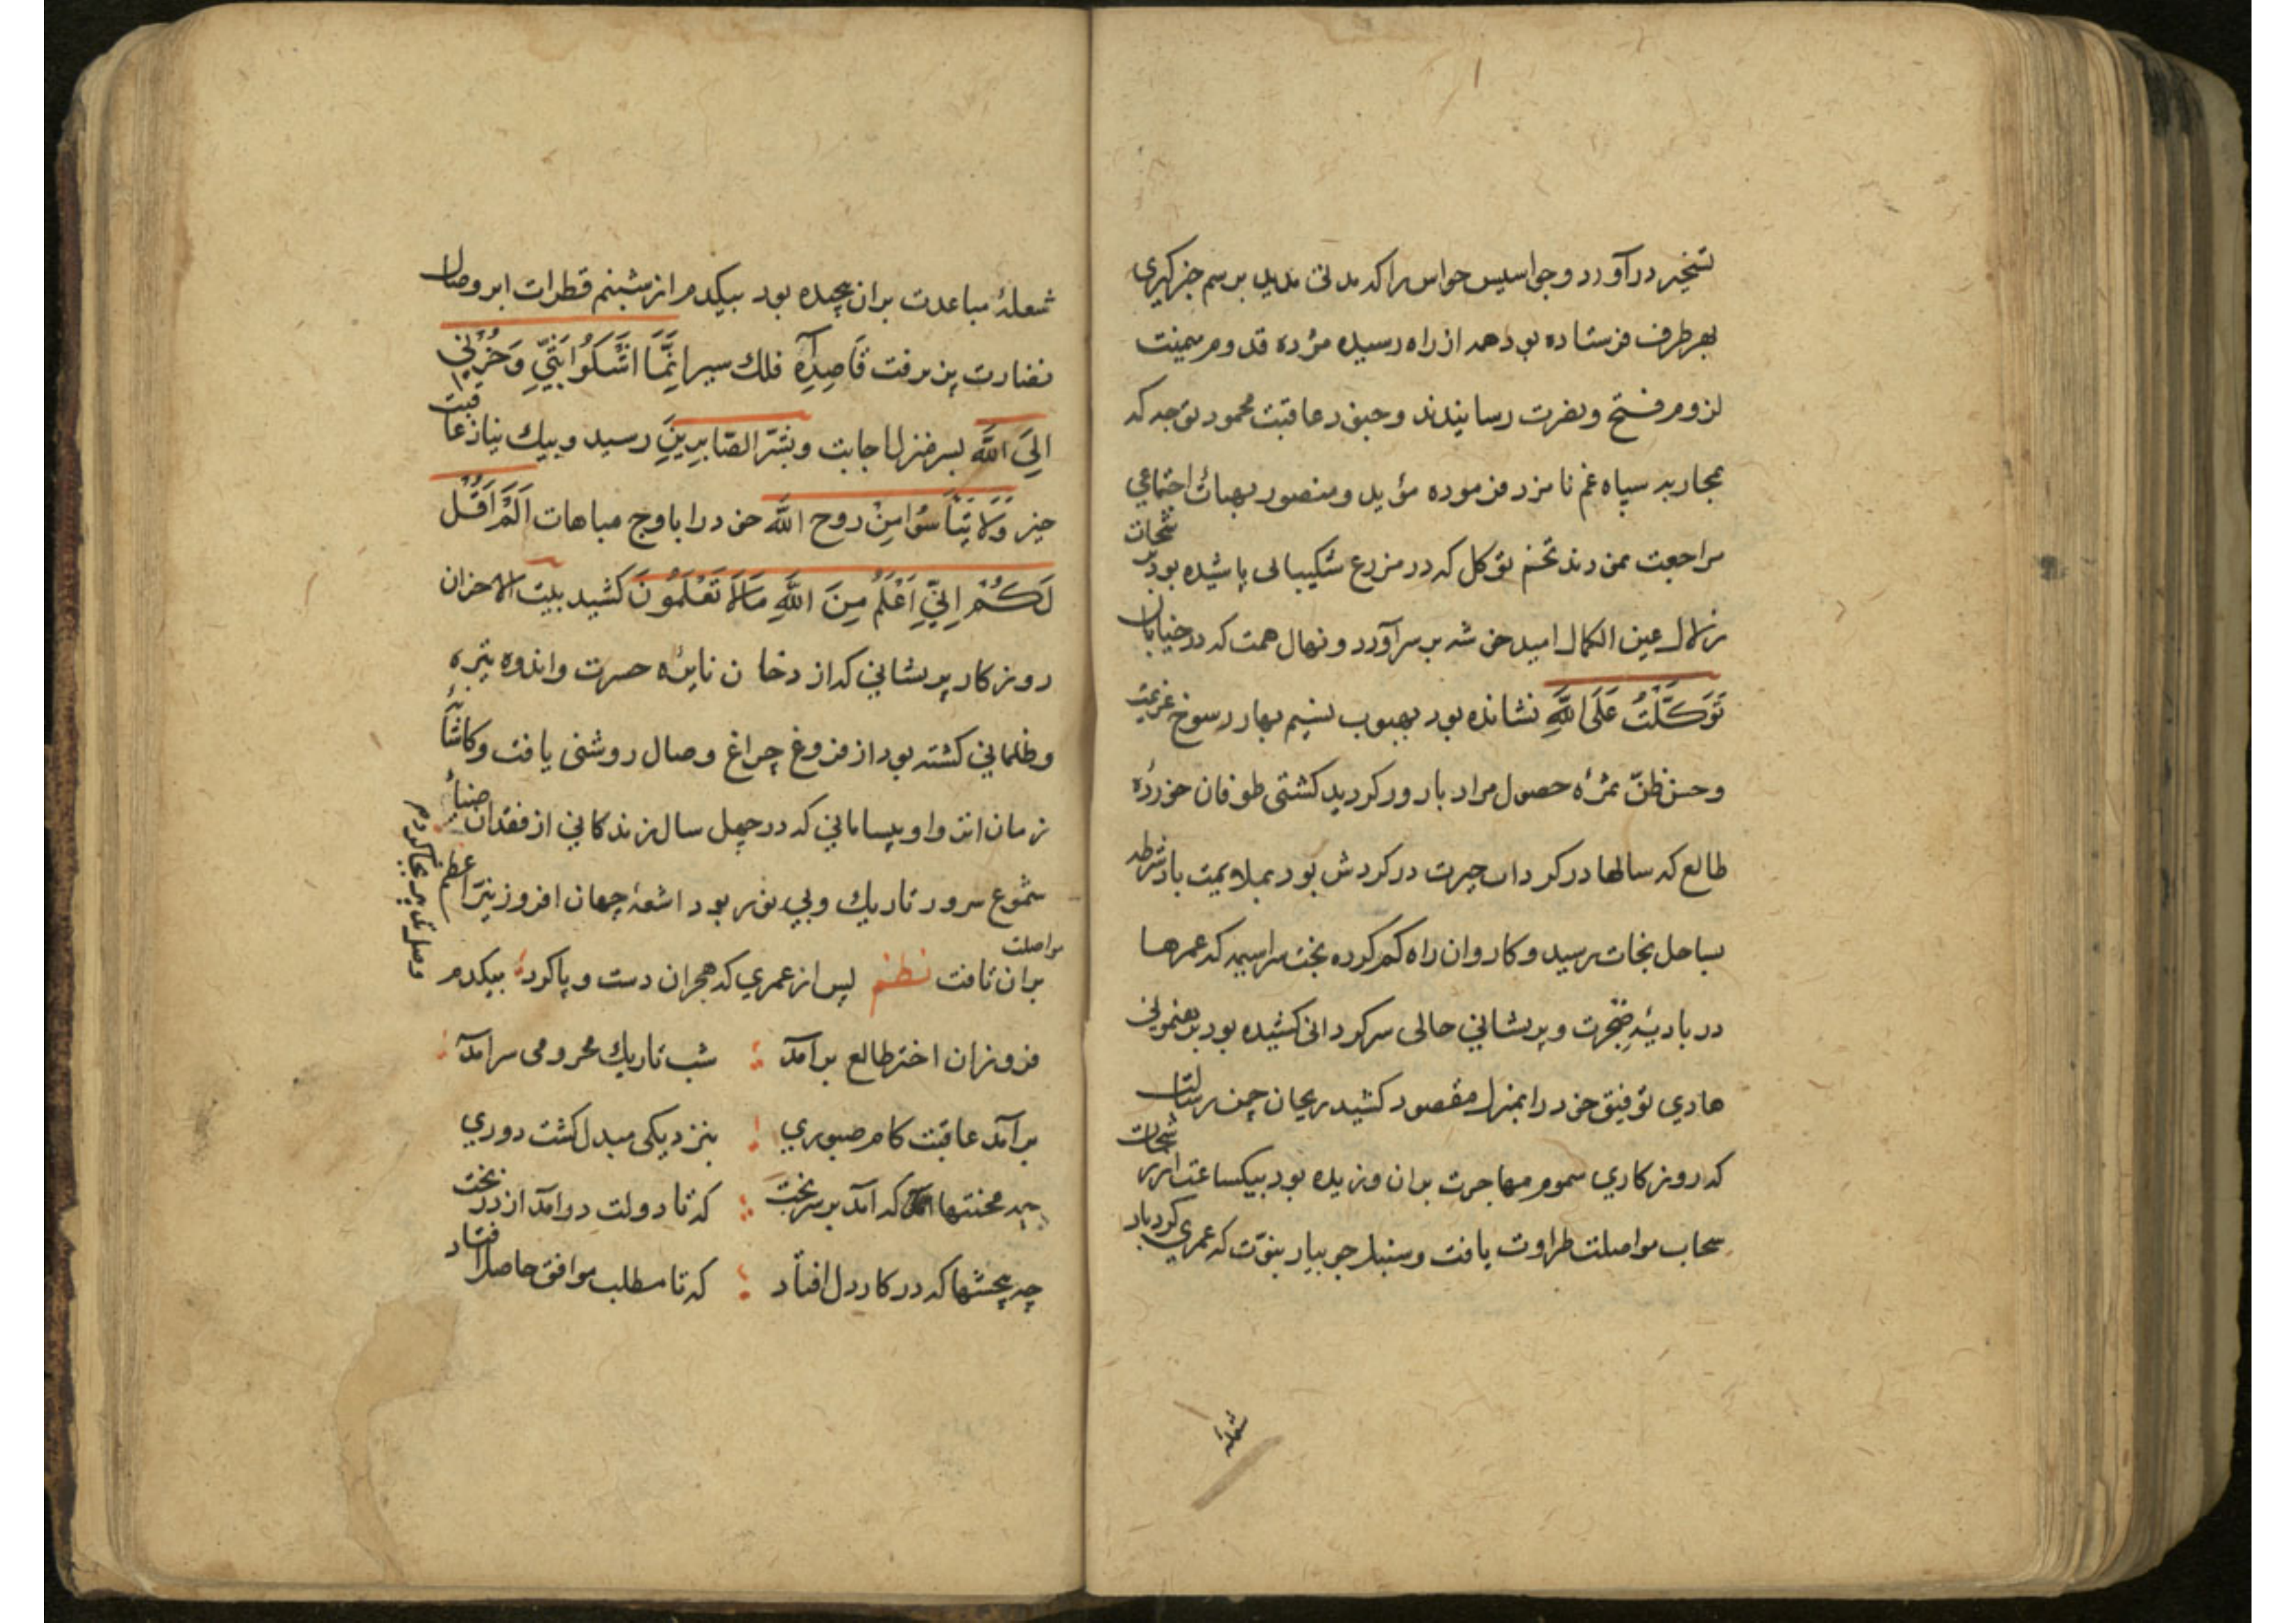 تسخیر درآورد و جواسیس حواس را که مدتی مدید برسم خبرگیری
بهر طرف فرستاده بود همه از راه رسیده مژده قدوم میمنت
لزوم فتح و نصرت رسانیدند و جنود عاقبت محمود توجه که
بمحاربه سپاه غم نامزد فرموده مؤید و منصور بهیأت اجتماعی
مراجعت نمودند تخم توکل که در مزرع شکیبائی پاشیده بود برشحات
زلال عین الکمال امید خوشه برسرآورد و نهال همت که در خیابان
تَوَكَّلْتُ عَلَى اللَّهِ نشانده بود بهبوب نسیم بهار رسوخ عزیمت
و حسن ظنّ ثمرۀ حصول مراد بارور کردید کشتی طوفان خوردۀ
طالع که سالها در کرداب حیرت در کردش بود بملایمت باد شرطه
بساحل نجات رسید و کاروان راه کم کرده بخت سراسیمه که عمرها
در بادیۀ ضجرت و پریشانی حالی سرکردانی کشیده بود برهنمونی
هادی توفیق خود را بمنزل مقصود کشید ریحان چمن رسالت
که روزکاری سموم مهاجرت بران وزیده بود بیکساعت از رشحات
سحاب مواصلت طراوت یافت و سنبل جویبار نبوّت که عمری کردباد
شعلۀ
شعلۀ مباعدت بران پیچیده بود بیکدم از شبنم قطرات ابر وصال
نضارت پذیرفت قاصد آه فلك سیر اِنَّمَا اَشْكُوا بَثِّي وَحُزْنِي
اِلَى اللَّه بسرمنزل اجابت وبَشِّرِ الصَّابِرِينَ رسید و پیك نیاز عاقبت
خیر وَلَا تَيْأَسُوا مِنْ رَوح اللَّه خود را باوج مباهات اَلَمْ اَقُلْ
لَكُمْ اِنِّي اَعْلَمُ مِنَ اللَّهِ مَالَا تَعْلَمُونَ کشید بیت الاحزان
روزکار پریشانی که از دخان نایرۀ حسرت و اندوه تیره
و ظلمانی کشته بود از فروغ چراغ وصال روشنی یافت و کاشانۀ
زمان انزوا و بیسامانی که در چهل سال زندکانی از فقدان ضیاء
شموع سرور تاریك و بی نور بود اشعۀ جهان افروز نیّر اعظم
مواصلت
بران تافت نظم پس از عمری که هجران دست و پا کرد بیکدم
وصل تدبیر بجا کرد
فروزان اختر طالع برآمد شب تاریك محرومی سرآمد
برآمد عاقبت کام صبوری بنزدیکی مبدل کشت دوری
چه محنتها که آمد بر سر بخت که تا دولت درآمد از در بخت
چه پیچشها که در کار دل افتاد که تا مطلب موافق حاصل افتاد